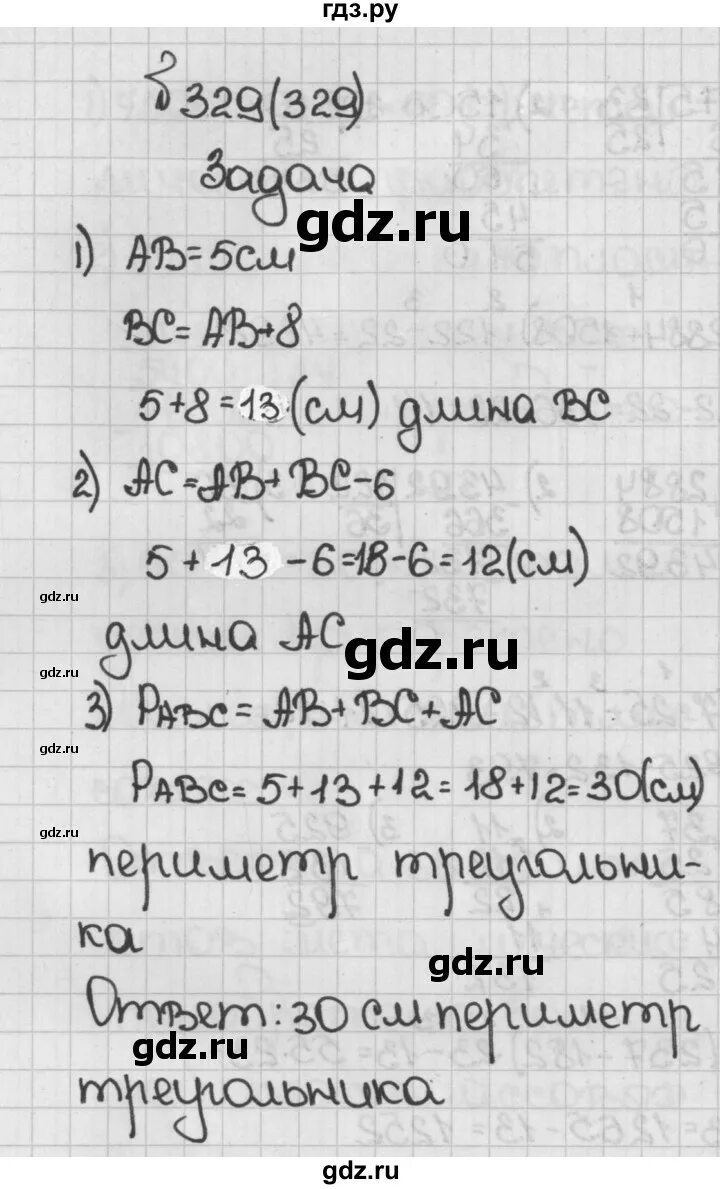 гдз.ру
329(329)
Задача
gdz.ru
1) AB=5см
BC=AB+8
5+8=13(см) длина BC
2) AC=AB+BC-6
5+13-6=18-6=12(см)
gdz.ru
длина AC
gdz.ru
gdz.ru
3) PABC=AB+BC+AC
gdz.ru
PABC=5+13+12=18+12=30(см)
gdz.ru
периметр треугольни-
ка
gdz.ru
Ответ: 30 см периметр
gdz.ru
треугольника
gdz.ru